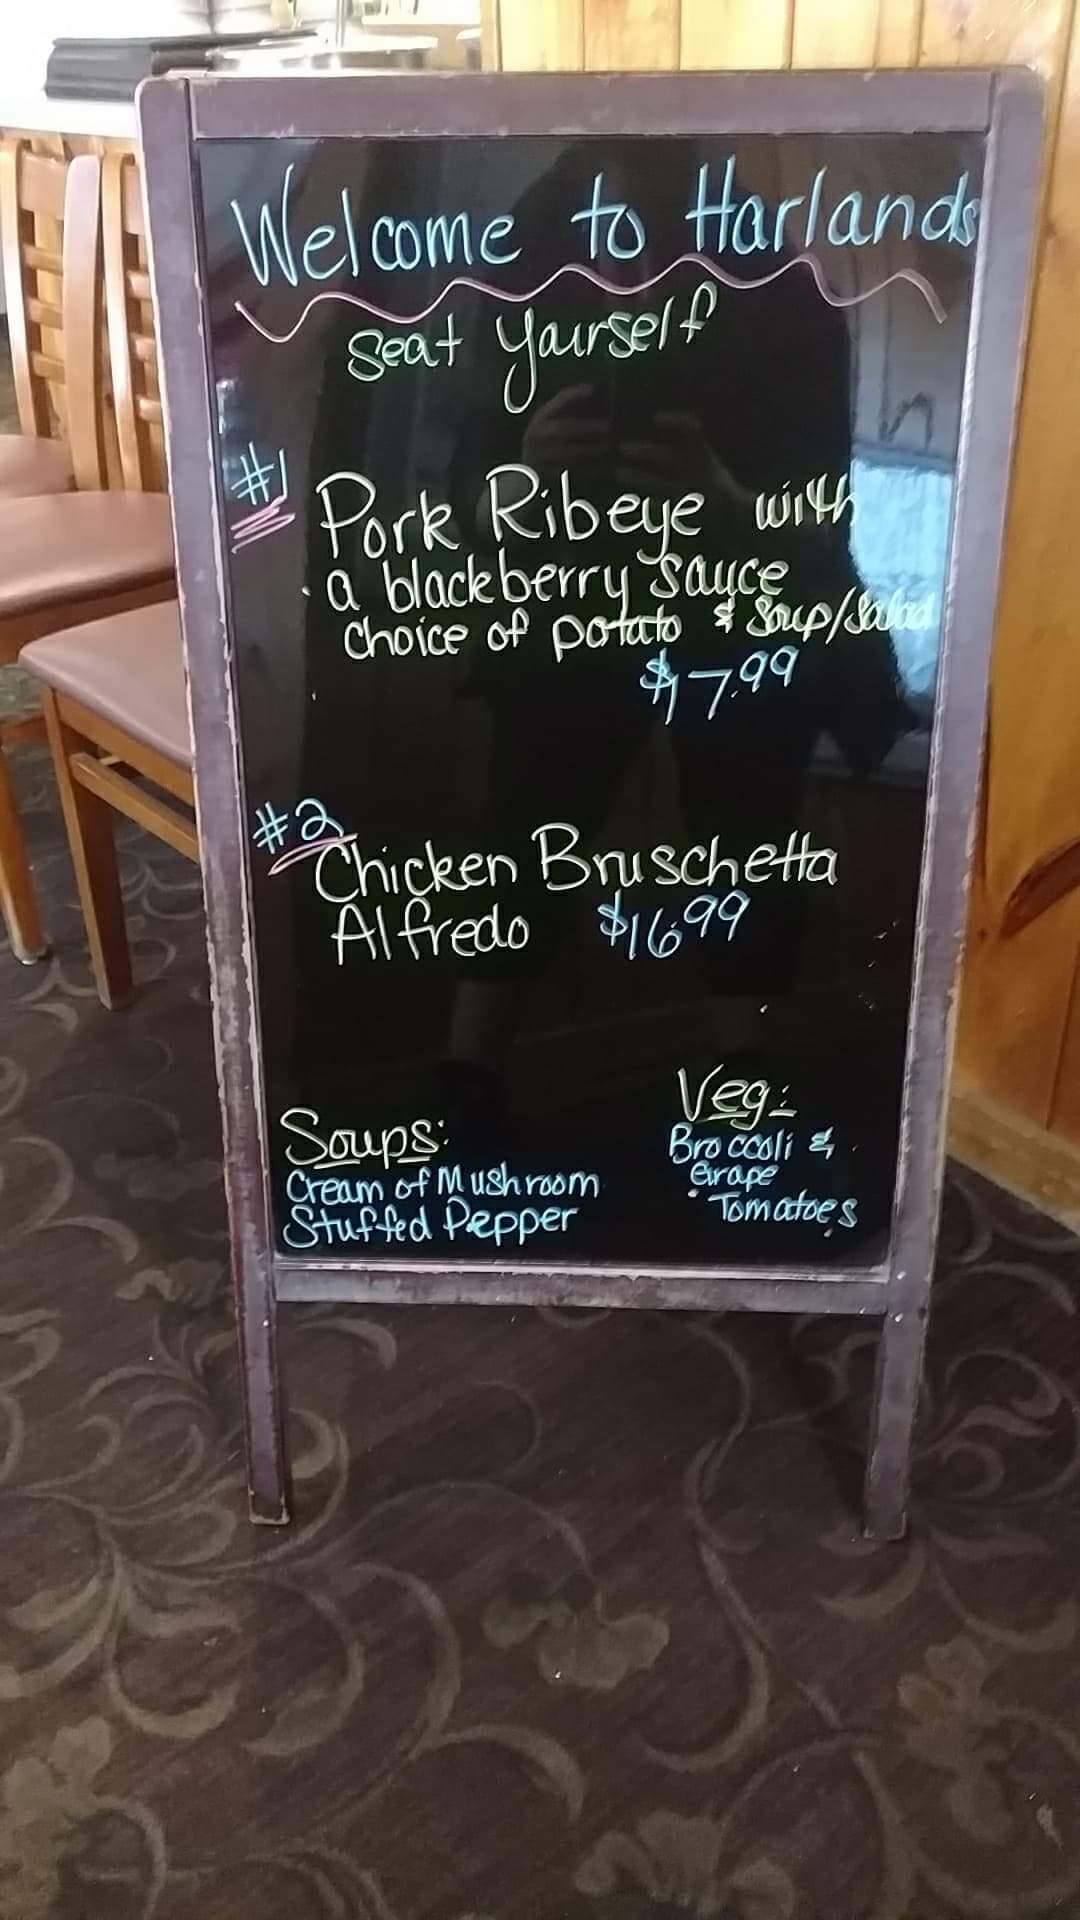 Welcome to Harlands
Seat yourself
#1
Pork Ribeye with
a blackberry sauce
choice of potato & Soup/Salad
$17.99
#2
Chicken Bruschetta
Alfredo $16.99
Soups:
Cream of Mushroom
Stuffed Pepper
Veg:
Broccoli &
Grape
Tomatoes